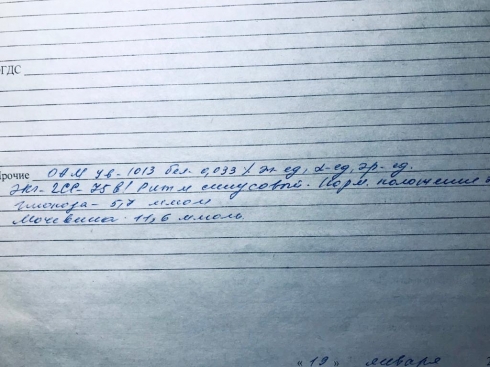 ФГДС
Прочие ОАМ ув- 1013 бел- 0,033‰ эп ед, L-ед, эр- ед.
Экг- ЧСС- 75 в1' Ритм синусовый. Норм. положение
глюкоза- 5,7 ммол
Мочевина- 11,6 ммоль
"19" января